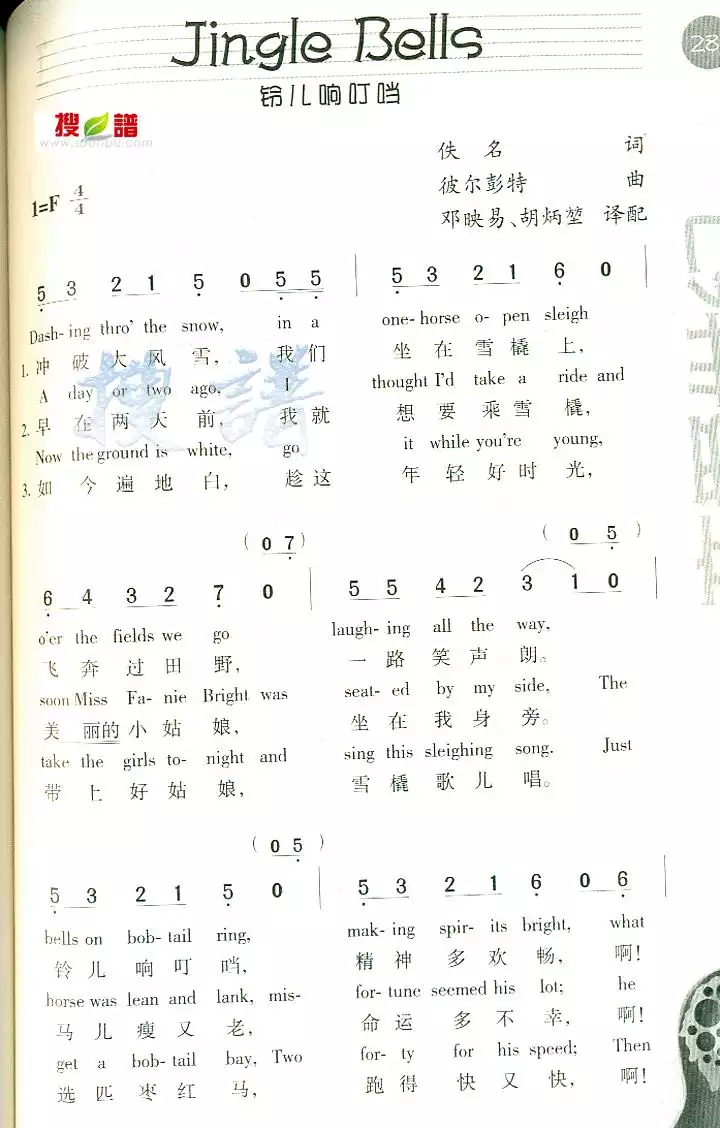 Jingle Bells
28
铃儿响叮当
搜谱
www.sooopu.com
佚名 词
彼尔彭特 曲
1=F 4/4
邓映易、胡炳堃 译配
5 3 2 1 5 0 5 5 | 5 3 2 1 6 0 |
Dash- ing thro' the snow, in a one- horse o- pen sleigh
1. 冲 破 大 风 雪, 我 们 坐 在 雪 橇 上,
A day or two ago, I thought I'd take a ride and
2. 早 在 两 天 前, 我 就 想 要 乘 雪 橇,
Now the ground is white, go it while you're young,
3. 如 今 遍 地 白, 趁 这 年 轻 好 时 光,
(0 7) (0 5)
6 4 3 2 7 0 | 5 5 4 2 3 1 0 |
o'er the fields we go laugh- ing all the way,
飞 奔 过 田 野, 一 路 笑 声 朗。
soon Miss Fa- nie Bright was seat- ed by my side, The
美 丽的 小 姑 娘, 坐 在 我 身 旁。
take the girls to- night and sing this sleighing song. Just
带 上 好 姑 娘, 雪 橇 歌 儿 唱。
(0 5)
5 3 2 1 5 0 | 5 3 2 1 6 0 6 |
bells on bob- tail ring, mak- ing spir- its bright, what
铃 儿 响 叮 当, 精 神 多 欢 畅, 啊!
horse was lean and lank, mis- for- tune seemed his lot; he
马 儿 瘦 又 老, 命 运 多 不 幸, 啊!
get a bob- tail bay, Two for- ty for his speed; Then
选 匹 枣 红 马, 跑 得 快 又 快, 啊!